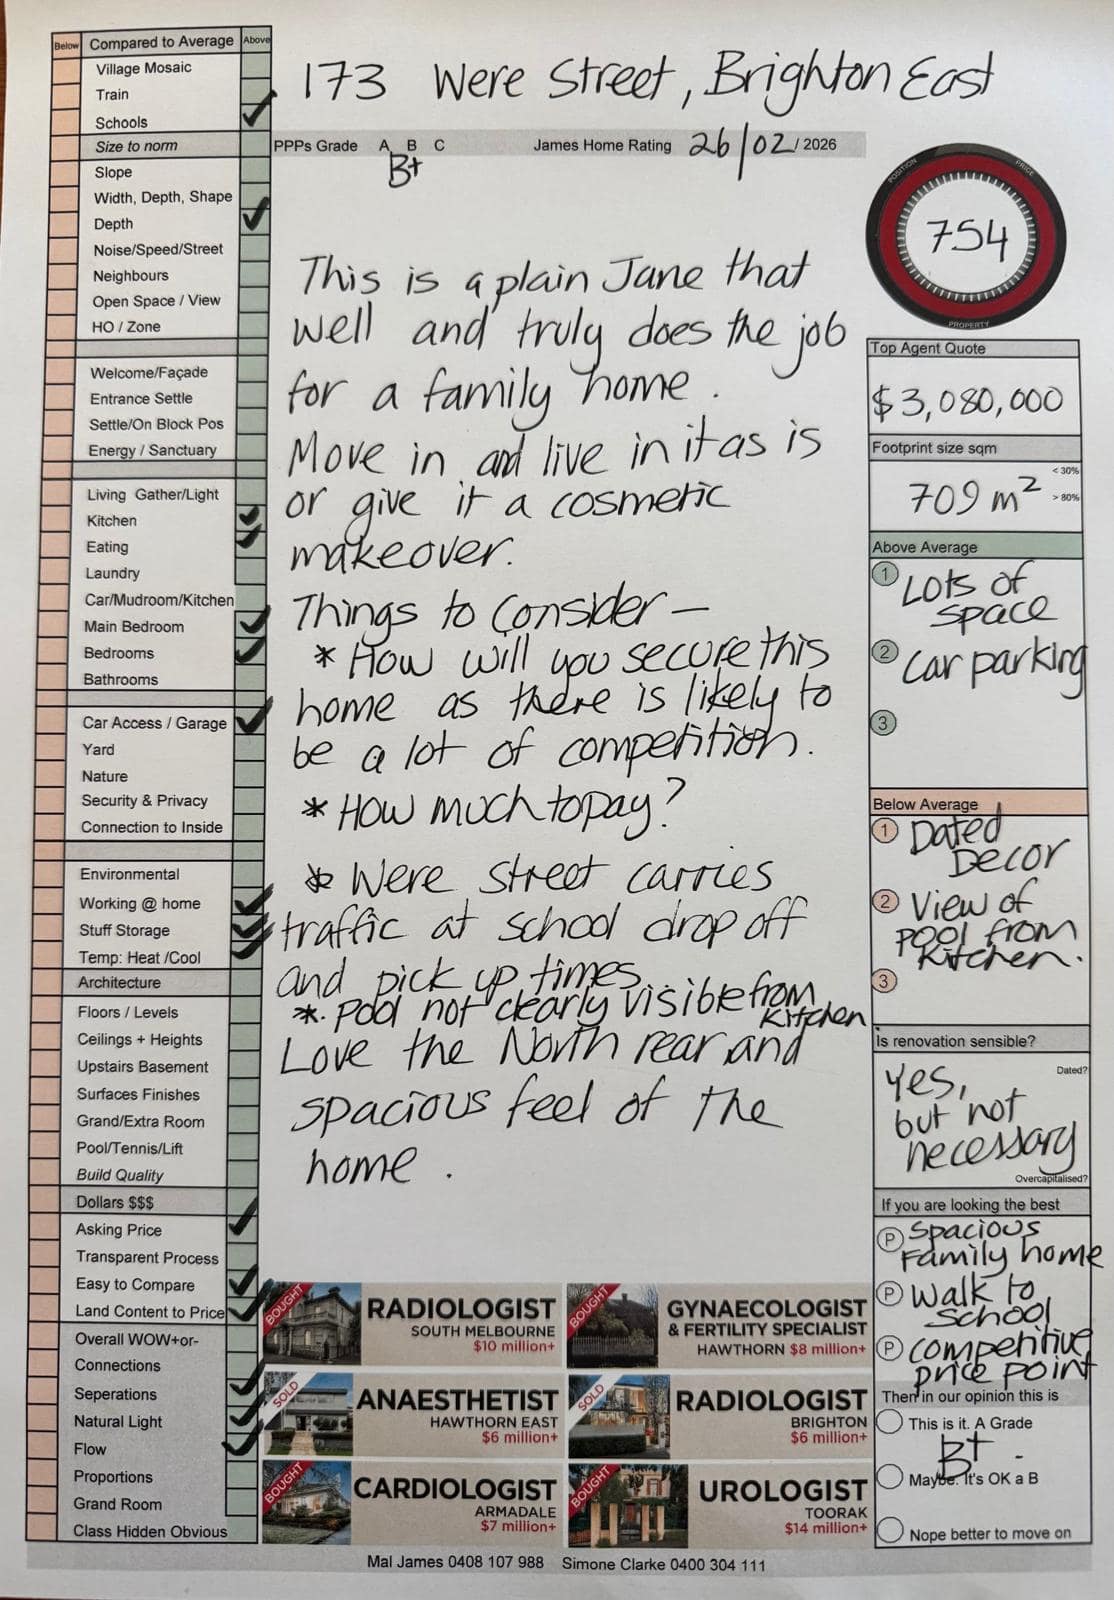 Below Compared to Average Above
Village Mosaic
Train
Schools
Size to norm
Slope
Width, Depth, Shape
Depth
Noise/Speed/Street
Neighbours
Open Space / View
HO / Zone
Welcome/Façade
Entrance Settle
Settle/On Block Pos
Energy / Sanctuary
Living Gather/Light
Kitchen
Eating
Laundry
Car/Mudroom/Kitchen
Main Bedroom
Bedrooms
Bathrooms
Car Access / Garage
Yard
Nature
Security & Privacy
Connection to Inside
Environmental
Working @ home
Stuff Storage
Temp: Heat /Cool
Architecture
Floors / Levels
Ceilings + Heights
Upstairs Basement
Surfaces Finishes
Grand/Extra Room
Pool/Tennis/Lift
Build Quality
Dollars $$$
Asking Price
Transparent Process
Easy to Compare
Land Content to Price
Overall WOW+or-
Connections
Seperations
Natural Light
Flow
Proportions
Grand Room
Class Hidden Obvious
173 Were Street, Brighton East
PPPs Grade A B C James Home Rating 26/02/ 2026
B+
This is a plain Jane that
well and truly does the job
for a family home.
Move in and live in it as is
or give it a cosmetic
makeover.
Things to Consider –
* How will you secure this
home as there is likely to
be a lot of competition.
* How much to pay?
* Were Street carries
traffic at school drop off
and pick up times
*. Pool not clearly visible from
Kitchen
Love the North rear and
spacious feel of the
home.
POSITION PRICE
754
PROPERTY
Top Agent Quote
$3,080,000
Footprint size sqm
< 30%
709 m²
> 80%
Above Average
1 Lots of
space
2 Car parking
3
Below Average
1 Dated
Decor
2 View of
Pool from
Kitchen.
3
Is renovation sensible?
Dated?
Yes,
but not
necessary
Overcapitalised?
If you are looking the best
P Spacious
Family home
P Walk to
School
P Competitive
price point
Then in our opinion this is
This is it. A Grade
B+
Maybe. It's OK a B
Nope better to move on
BOUGHT
RADIOLOGIST
SOUTH MELBOURNE
$10 million+
BOUGHT
GYNAECOLOGIST
& FERTILITY SPECIALIST
HAWTHORN $8 million+
SOLD
ANAESTHETIST
HAWTHORN EAST
$6 million+
SOLD
RADIOLOGIST
BRIGHTON
$6 million+
BOUGHT
CARDIOLOGIST
ARMADALE
$7 million+
BOUGHT
UROLOGIST
TOORAK
$14 million+
Mal James 0408 107 988 Simone Clarke 0400 304 111